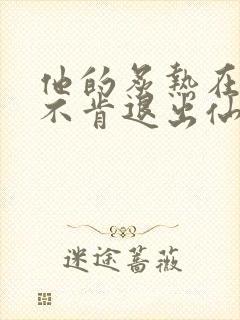 他的炙热在
不肯退出仙
迷途蔷薇